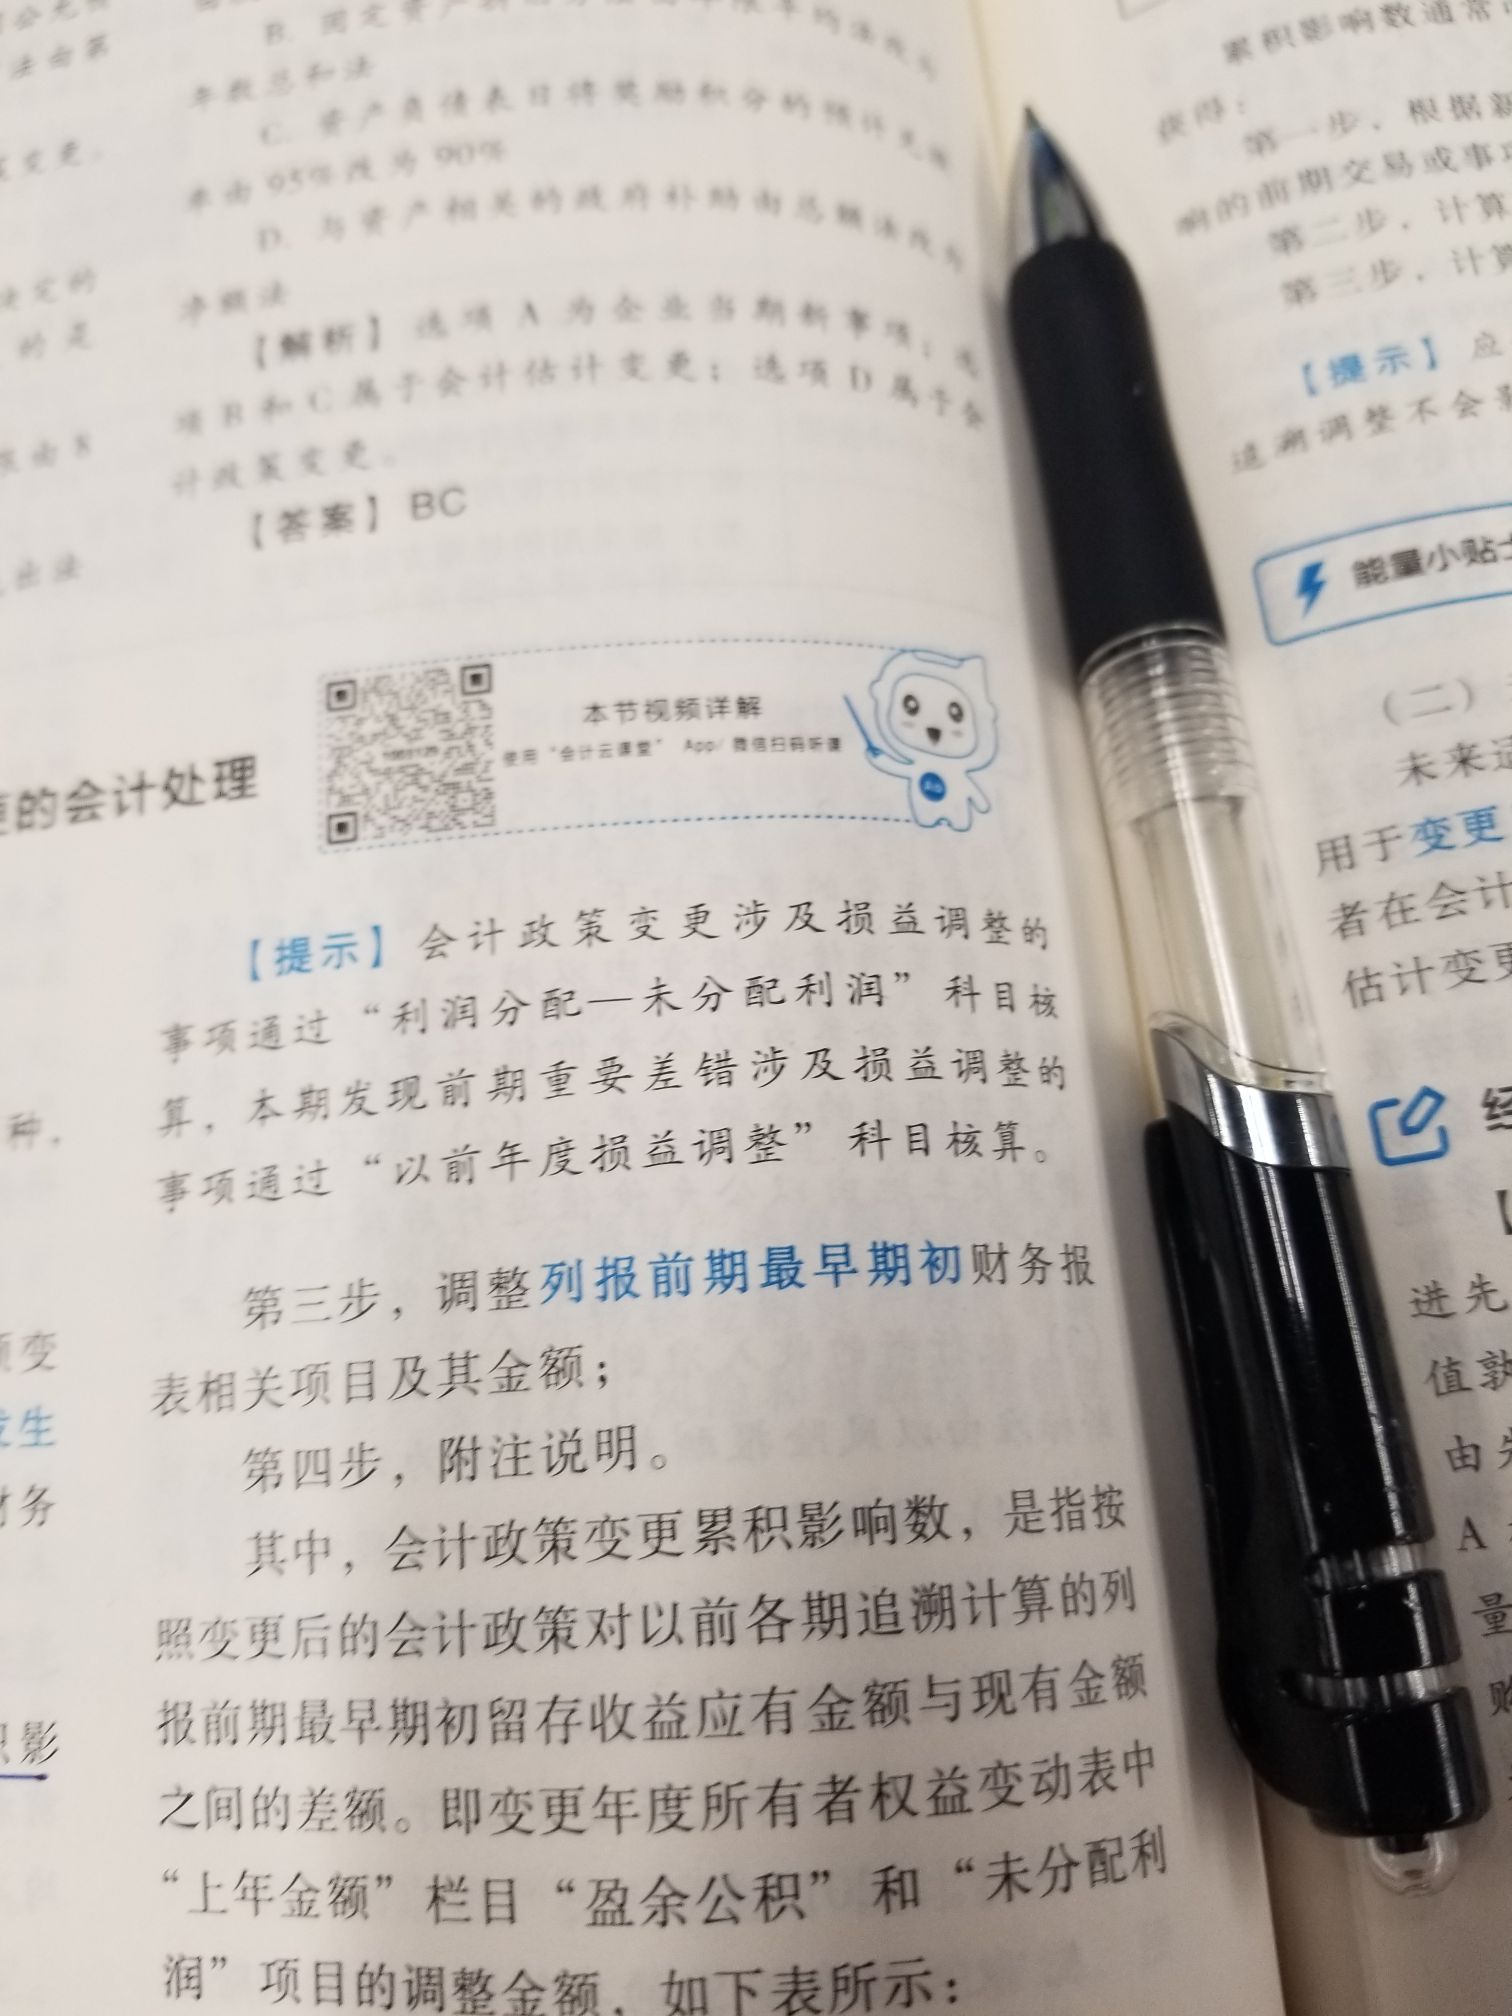 法由第
变更.
决定的
的是
由8
出法
更的会计处理
种,
变
发生
财务
影
年数总和法
C. 资产负债表日将奖励积分的预计兑换
率由95%改为90%
D. 与资产相关的政府补助由总额法改为
净额法
【解析】选项A为企业当期新事项;选
项B和C属于会计估计变更;选项D属于会
计政策变更。
【答案】BC
本节视频详解
使用“会计云课堂” App/ 微信扫码听课
【提示】会计政策变更涉及损益调整的
事项通过“利润分配—未分配利润”科目核
算,本期发现前期重要差错涉及损益调整的
事项通过“以前年度损益调整”科目核算。
第三步,调整列报前期最早期初财务报
表相关项目及其金额;
第四步,附注说明。
其中,会计政策变更累积影响数,是指按
照变更后的会计政策对以前各期追溯计算的列
报前期最早期初留存收益应有金额与现有金额
之间的差额。即变更年度所有者权益变动表中
“上年金额”栏目“盈余公积”和“未分配利
润”项目的调整金额,如下表所示:
累积影响数通常
获得:
第一步,根据新
响的前期交易或事项
第二步,计算
第三步,计算
【提示】应
追溯调整不会
能量小贴士
(二)
未来适
用于变更
者在会计
估计变更
经
【
进先
值孰
由先
A
量
账